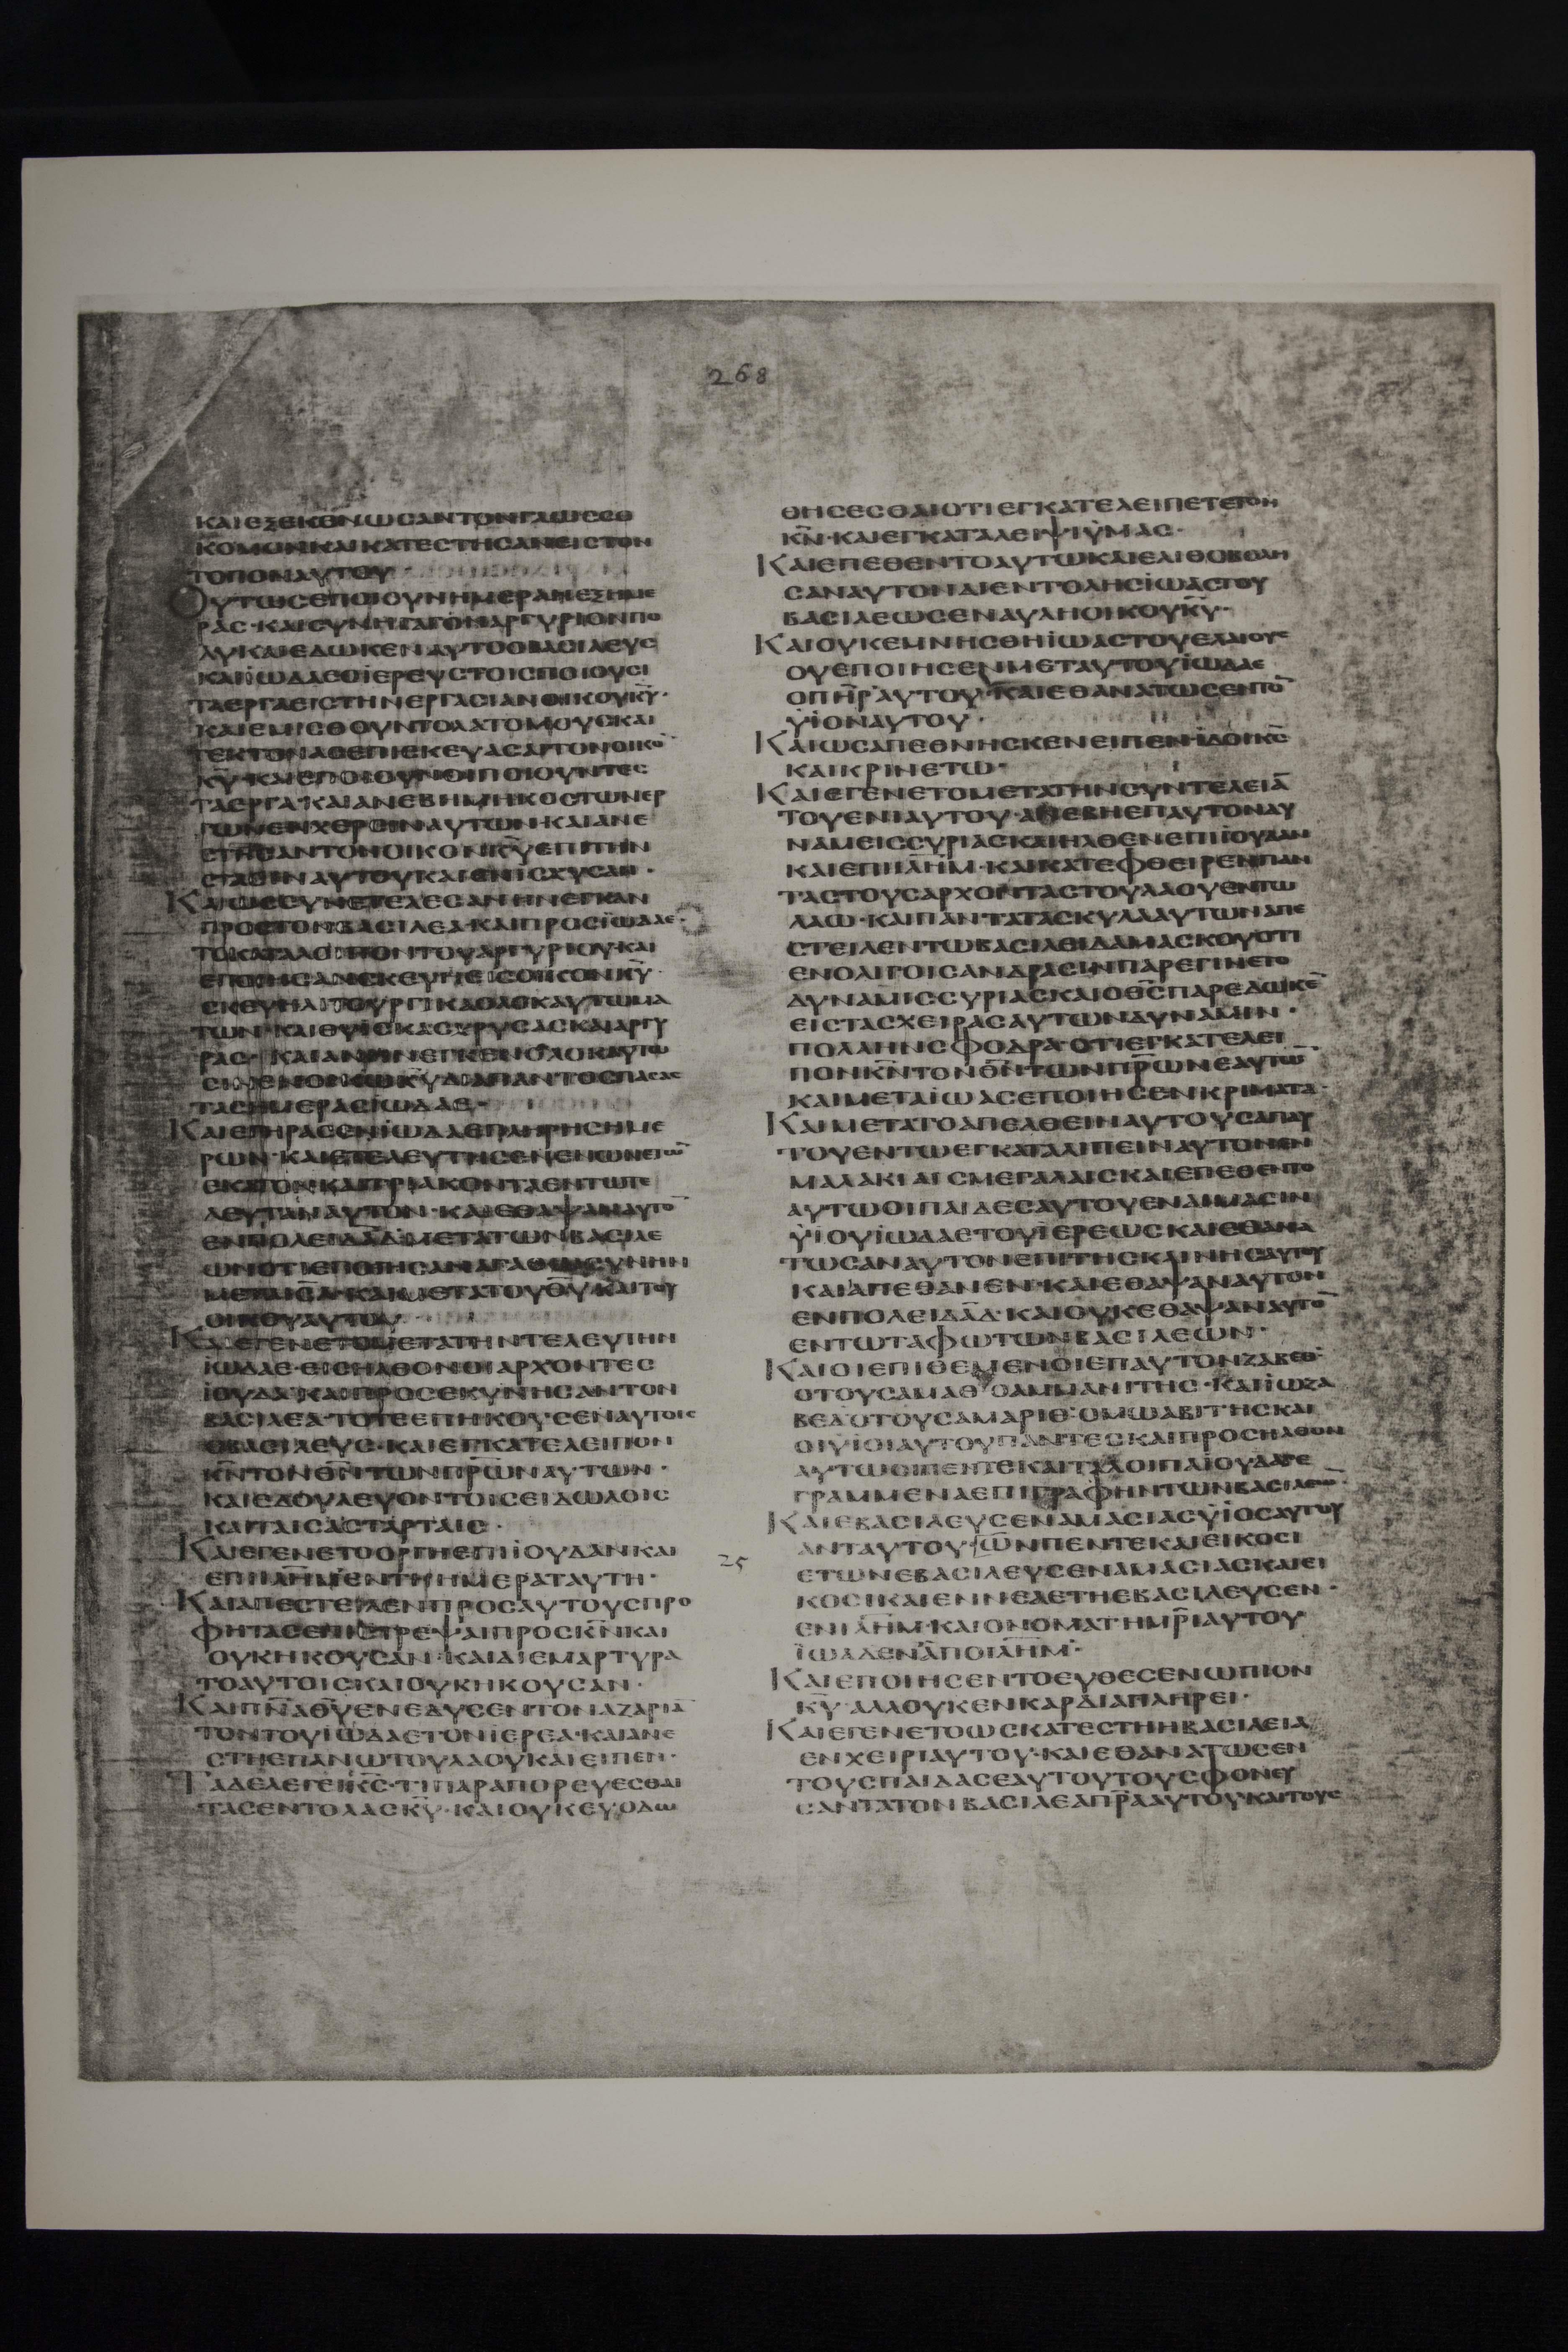 268
ΚΑΙΕΞΕΚΕΝΩCΑΝΤΟΝΓΛΩCCΟ
ΚΟΜΟΝΚΑΙΚΑΤΕCΤΗCΑΝΕΙCΤΟΝ
ΤΟΠΟΝΑΥΤΟΥ
ΟΥΤΩCΕΠΟΙΟΥΝΗΜΕΡΑΝΕΞΗΜΕ
ΡΑC·ΚΑΙCΥΝΗΓΑΓΟΝΑΡΓΥΡΙΟΝΠΟ
ΛΥΚΑΙΕΔΩΚΕΝΑΥΤΟΟΒΑCΙΛΕΥC
ΚΑΙΪΩΔΑΕΟΪΕΡΕΥCΤΟΙCΠΟΙΟΥCΙ
ΤΑΕΡΓΑΕΙCΤΗΝΕΡΓΑCΙΑΝΟΙΚΟΥΚ̅Υ̅·
ΚΑΙΕΜΙCΘΟΥΝΤΟΛΑΤΟΜΟΥCΚΑΙ
ΤΕΚΤΟΝΑCΕΠΙCΚΕΥΑCΑΙΤΟΝΟΙΚΟ̅
Κ̅Υ̅·ΚΑΙΕΠΟΙΟΥΝΟΙΠΟΙΟΥΝΤΕC
ΤΑΕΡΓΑ·ΚΑΙΑΝΕΒΗΜΗΚΟCΤΩΝΕΡ
ΓΩΝΕΝΧΕΡCΙΝΑΥΤΩΝ·ΚΑΙΑΝΕ
CΤΗCΑΝΤΟΝΟΙΚΟΝΚ̅Υ̅ΕΠΙΤΗΝ
CΤΑCΙΝΑΥΤΟΥΚΑΙΕΝΙCΧΥCΑΝ·
ΚΑΙΩCCΥΝΕΤΕΛΕCΑΝΗΝΕΓΚΑΝ
ΠΡΟCΤΟΝΒΑCΙΛΕΑ·ΚΑΙΠΡΟCΪΩΔΑΕ·
ΤΟΚΑΤΑΛΟΙΠΟΝΤΟΥΑΡΓΥΡΙΟΥ·ΚΑΙ
ΕΠΟΙΗCΑΝCΚΕΥΗΕΙCΟΙΚΟΝΚ̅Υ̅·
CΚΕΥΗΛΙΤΟΥΡΓΙΚΑΟΛΟΚΑΥΤΩΜΑ
ΤΩΝ·ΚΑΙΘΥΙCΚΑCΧΡΥCΑCΚΑΙΑΡΓΥ
ΤΑCΗΜΕΡΑCΪΩΔΑΕ·
ΚΑΙΕΓΗΡΑCΕΝΪΩΔΑΕΠΛΗΡΗCΗΜΕ
ΕΚΑΤΟΝΚΑΙΤΡΙΑΚΟΝΤΑΕΝΤΩΤΕ
ΛΕΥΤΑΝΑΥΤΟΝ·ΚΑΙΕΘΑΨΑΝΑΥΤΟ̅
ΕΝΠΟΛΕΙΔΑ̅Δ̅ΜΕΤΑΤΩΝΒΑCΙΛΕ
ΜΕΤΑΙ̅C̅Λ̅·ΚΑΙΜΕΤΑΤΟΥΘ̅Υ̅ΚΑΙΤΟΥ
ΟΙΚΟΥΑΥΤΟΥ
ΚΑΙΕΓΕΝΕΤΟΜΕΤΑΤΗΝΤΕΛΕΥΤΗΝ
ΪΩΔΑΕ·ΕΙCΗΛΘΟΝΟΙΑΡΧΟΝΤΕC
ΪΟΥΔΑ·ΚΑΙΠΡΟCΕΚΥΝΗCΑΝΤΟΝ
ΒΑCΙΛΕΑ·ΤΟΤΕΕΠΗΚΟΥCΕΝΑΥΤΟΙC
ΟΒΑCΙΛΕΥC·ΚΑΙΕΓΚΑΤΕΛΕΙΠΟΝ
Κ̅Ν̅ΤΟΝΘ̅Ν̅ΤΩΝΠ̅Ρ̅Ω̅Ν̅ΑΥΤΩΝ·
ΚΑΙΕΔΟΥΛΕΥΟΝΤΟΙCΕΙΔΩΛΟΙC
ΚΑΙΤΑΙCΑCΤΑΡΤΑΙC·
ΚΑΙΕΓΕΝΕΤΟΟΡΓΗΕΠΙΪΟΥΔΑΝΚΑΙ
ΕΠΙΙ̅Λ̅Η̅Μ̅ΕΝΤΗΗΜΕΡΑΤΑΥΤΗ·
ΚΑΙΑΠΕCΤΕΙΛΕΝΠΡΟCΑΥΤΟΥCΠΡΟ
ΦΗΤΑCΕΠΙCΤΡΕΨΑΙΠΡΟCΚ̅Ν̅ΚΑΙ
ΟΥΚΗΚΟΥCΑΝ·ΚΑΙΔΙΕΜΑΡΤΥΡΑ
ΤΟΑΥΤΟΙCΚΑΙΟΥΚΗΚΟΥCΑΝ·
ΚΑΙΠ̅Ν̅Α̅Θ̅Υ̅ΕΝΕΔΥCΕΝΤΟΝΑΖΑΡΙΑ̅
ΤΟΝΤΟΥΪΩΔΑΕΤΟΝΪΕΡΕΑ·ΚΑΙΑΝΕ
CΤΗΕΠΑΝΩΤΟΥΛΑΟΥΚΑΙΕΙΠΕΝ·
ΤΑΔΕΛΕΓΕΙΚ̅C̅·ΤΙΠΑΡΑΠΟΡΕΥΕCΘΑΙ
ΤΑCΕΝΤΟΛΑCΚ̅Υ̅·ΚΑΙΟΥΚΕΥΟΔΩ
ΘΗCΕCΘΑΙΟΤΙΕΓΚΑΤΕΛΕΙΠΕΤΕΤΟΝ
Κ̅Ν̅·ΚΑΙΕΓΚΑΤΑΛΕΙΨΙΫΜΑC·
ΚΑΙΕΠΕΘΕΝΤΟΑΥΤΩΚΑΙΕΛΙΘΟΒΟΛΗ
CΑΝΑΥΤΟΝΔΙΕΝΤΟΛΗCΪΩΑCΤΟΥ
ΒΑCΙΛΕΩCΕΝΑΥΛΗΟΙΚΟΥΚ̅Υ̅·
ΚΑΙΟΥΚΕΜΝΗCΘΗΪΩΑCΤΟΥΕΛΑΙΟΥC
ΟΥΕΠΟΙΗCΕΝΜΕΤΑΥΤΟΥΪΩΔΑΕ
ΟΠ̅Η̅Ρ̅ΑΥΤΟΥ·ΚΑΙΕΘΑΝΑΤΩCΕΝΤΟ̅
ΫΪΟΝΑΥΤΟΥ·
ΚΑΙΩCΑΠΕΘΝΗCΚΕΝΕΙΠΕΝ·ΪΔΟΙΚ̅C̅
ΚΑΙΚΡΙΝΕΤΩ·
ΚΑΙΕΓΕΝΕΤΟΜΕΤΑΤΗΝCΥΝΤΕΛΕΙΑ̅
ΤΟΥΕΝΙΑΥΤΟΥ·ΑΝΕΒΗΕΠΑΥΤΟΝΔΥ
ΝΑΜΕΙCCΥΡΙΑCΚΑΙΗΛΘΕΝΕΠΙΪΟΥΔΑΝ
ΚΑΙΕΠΙΙ̅Λ̅Η̅Μ̅·ΚΑΙΚΑΤΕΦΘΕΙΡΕΝΠΑΝ
ΤΑCΤΟΥCΑΡΧΟΝΤΑCΤΟΥΛΑΟΥΕΝΤΩ
ΛΑΩ·ΚΑΙΠΑΝΤΑΤΑCΚΥΛΑΑΥΤΩΝΑΠΕ
CΤΕΙΛΕΝΤΩΒΑCΙΛΕΙΔΑΜΑCΚΟΥΟΤΙ
ΕΝΟΛΙΓΟΙCΑΝΔΡΑCΙΝΠΑΡΕΓΙΝΕΤΟ
ΔΥΝΑΜΙCCΥΡΙΑCΚΑΙΟΘ̅C̅ΠΑΡΕΔΩΚΕ̅
ΕΙCΤΑCΧΕΙΡΑCΑΥΤΩΝΔΥΝΑΜΙΝ·
ΠΟΛΛΗΝCΦΟΔΡΑ·ΟΤΙΕΓΚΑΤΕΛΕΙ
ΠΟΝΚ̅Ν̅ΤΟΝΘ̅Ν̅ΤΩΝΠ̅Ρ̅Ω̅Ν̅ΕΑΥΤΩ̅
ΚΑΙΜΕΤΑΪΩΑCΕΠΟΙΗCΕΝΚΡΙΜΑΤΑ·
ΚΑΙΜΕΤΑΤΟΑΠΕΛΘΕΙΝΑΥΤΟΥCΑΠΑΥ
ΤΟΥΕΝΤΩΕΓΚΑΤΑΛΙΠΕΙΝΑΥΤΟΝΕΝ
ΜΑΛΑΚΙΑΙCΜΕΓΑΛΑΙCΚΑΙΕΠΕΘΕΝΤΟ
ΑΥΤΩΟΙΠΑΙΔΕCΑΥΤΟΥΕΝΑΙΜΑCΙΝ
ΫΪΟΥΪΩΔΑΕΤΟΥΪΕΡΕΩCΚΑΙΕΘΑΝΑ
ΤΩCΑΝΑΥΤΟΝΕΠΙΤΗCΚΛΙΝΗCΑΥΤΟΥ
ΚΑΙΑΠΕΘΑΝΕΝ·ΚΑΙΕΘΑΨΑΝΑΥΤΟΝ
ΕΝΠΟΛΕΙΔΑ̅Δ̅·ΚΑΙΟΥΚΕΘΑΨΑΝΑΥΤΟ̅
ΕΝΤΩΤΑΦΩΤΩΝΒΑCΙΛΕΩΝ·
ΚΑΙΟΙΕΠΙΘΕΜΕΝΟΙΕΠΑΥΤΟΝΖΑΒΕΘ·
ΟΤΟΥCΑΜΑΘ·ΟΑΜΜΑΝΙΤΗC·ΚΑΙΪΩΖΑ
ΒΕΔ·ΟΤΟΥCΑΜΑΡΙΘ·ΟΜΩΑΒΙΤΗCΚΑΙ
ΟΙΫΪΟΙΑΥΤΟΥΠΑΝΤΕCΚΑΙΠΡΟCΗΛΘΟΝ
ΑΥΤΩΟΙΠΕΝΤΕΚΑΙΤΑΛΟΙΠΑΙΔΟΥΔΑΓΕ
ΓΡΑΜΜΕΝΑΕΠΙΓΡΑΦΗΝΤΩΝΒΑCΙΛΕΩ̅·
ΚΑΙΕΒΑCΙΛΕΥCΕΝΑΜΑCΙΑCΫΪΟCΑΥΤΟΥ
ΑΝΤΑΥΤΟΥ·ΩΝΠΕΝΤΕΚΑΙΕΙΚΟCΙ
25
ΕΤΩΝΕΒΑCΙΛΕΥCΕΝΑΜΑCΙΑCΚΑΙΕΙ
ΚΟCΙΚΑΙΕΝΝΕΑΕΤΗΕΒΑCΙΛΕΥCΕΝ·
ΕΝΙ̅Λ̅Η̅Μ̅·ΚΑΙΟΝΟΜΑΤΗΜ̅Ρ̅Ι̅ΑΥΤΟΥ
ΪΩΑΔΕΝΑΠΟΙ̅Λ̅Η̅Μ̅·
ΚΑΙΕΠΟΙΗCΕΝΤΟΕΥΘΕCΕΝΩΠΙΟΝ
Κ̅Υ̅·ΑΛΛΟΥΚΕΝΚΑΡΔΙΑΠΛΗΡΕΙ·
ΚΑΙΕΓΕΝΕΤΟΩCΚΑΤΕCΤΗΗΒΑCΙΛΕΙΑ
ΕΝΧΕΙΡΙΑΥΤΟΥ·ΚΑΙΕΘΑΝΑΤΩCΕΝ
ΤΟΥCΠΑΙΔΑCΕΑΥΤΟΥΤΟΥCΦΟΝΕΥ
CΑΝΤΑΤΟΝΒΑCΙΛΕΑΠ̅Ρ̅Α̅ΑΥΤΟΥΚΑΙΤΟΥC